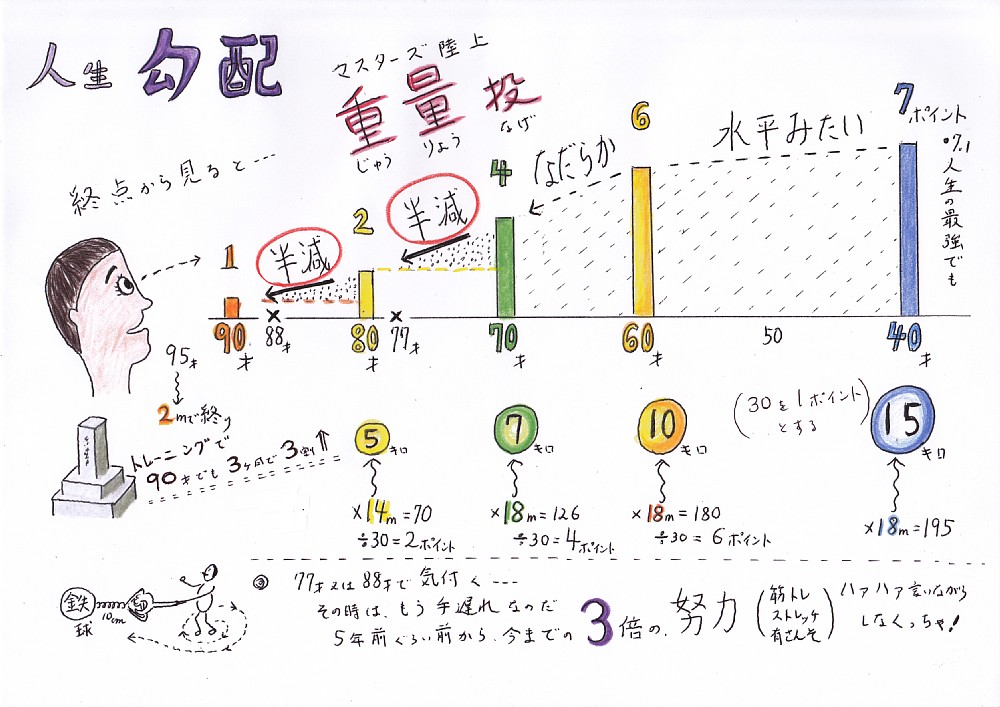 人生 勾配
マスターズ陸上
重量投
じゅう りょう なげ
終点から見ると…
1
半減
2
半減
4
なだらか
6
水平みたい
7ポイント
人生の最強でも
90才
88才
80才
77才
70才
60才
50
40才
95才
2mで終り
トレーニングで
90才でも3ヶ月で3割↑
5キロ
7キロ
10キロ
(30を1ポイント
とする)
15キロ
×14m=70
÷30=2ポイント
×18m=126
÷30=4ポイント
×18m=180
÷30=6ポイント
×18m=195
鉄
球
10cm
77才又は88才で気付く…
その時は、もう手遅れなのだ
5年前ぐらい前から、今までの3倍の、努力
(筋トレ
ストレッチ
有さんそ)
ハァハァ言いながら
しなくっちゃ!